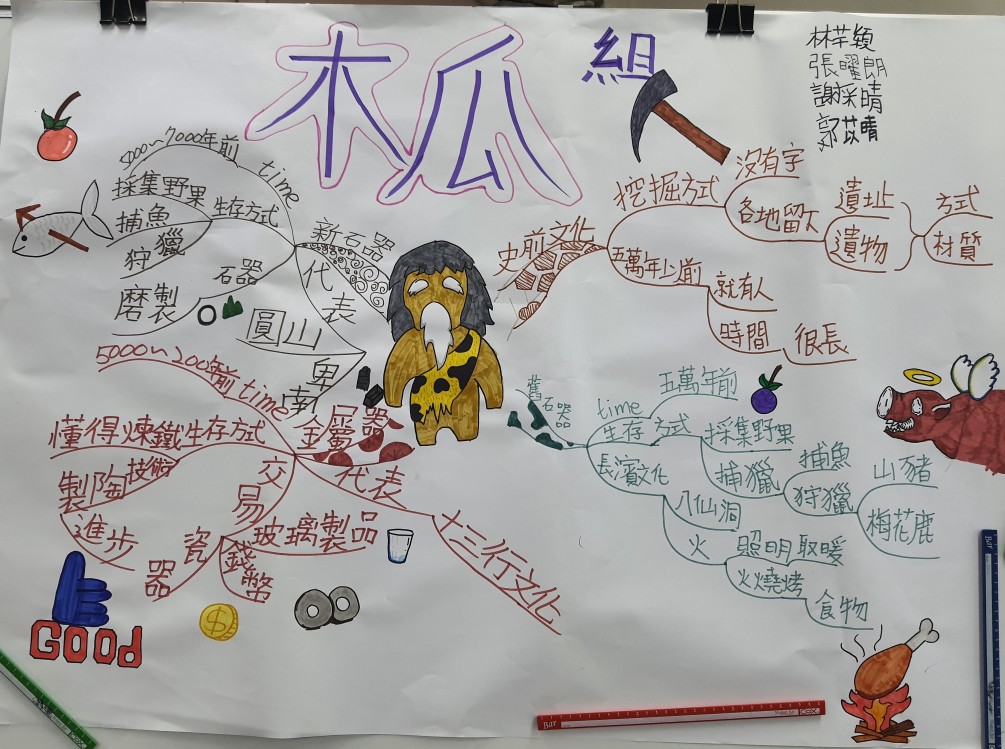 木瓜組
林芊穎
張曜朗
謝採晴
郭苡晴
史前文化
挖掘方式
沒有字
各地留下
遺址
遺物
方式
材質
五萬年少前
就有人
時間
很長
舊石器
time
五萬年前
生存方式
採集野果
捕獵
捕魚
狩獵
山豬
梅花鹿
長濱文化
八仙洞
火
照明取暖
火燒烤
食物
金屬器
time
5000~200年前
生存方式
懂得煉鐵
技術
製陶
進步
交易
瓷器
錢幣
玻璃製品
代表
十三行文化
新石器
time
5000~7000年前
生存方式
採集野果
捕魚
狩獵
石器
磨製
代表
圓山
卑南
GOOD
$
Bar
Bar